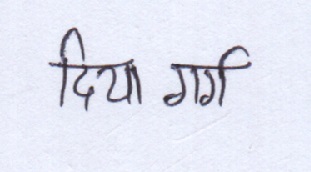 दिया गर्ग